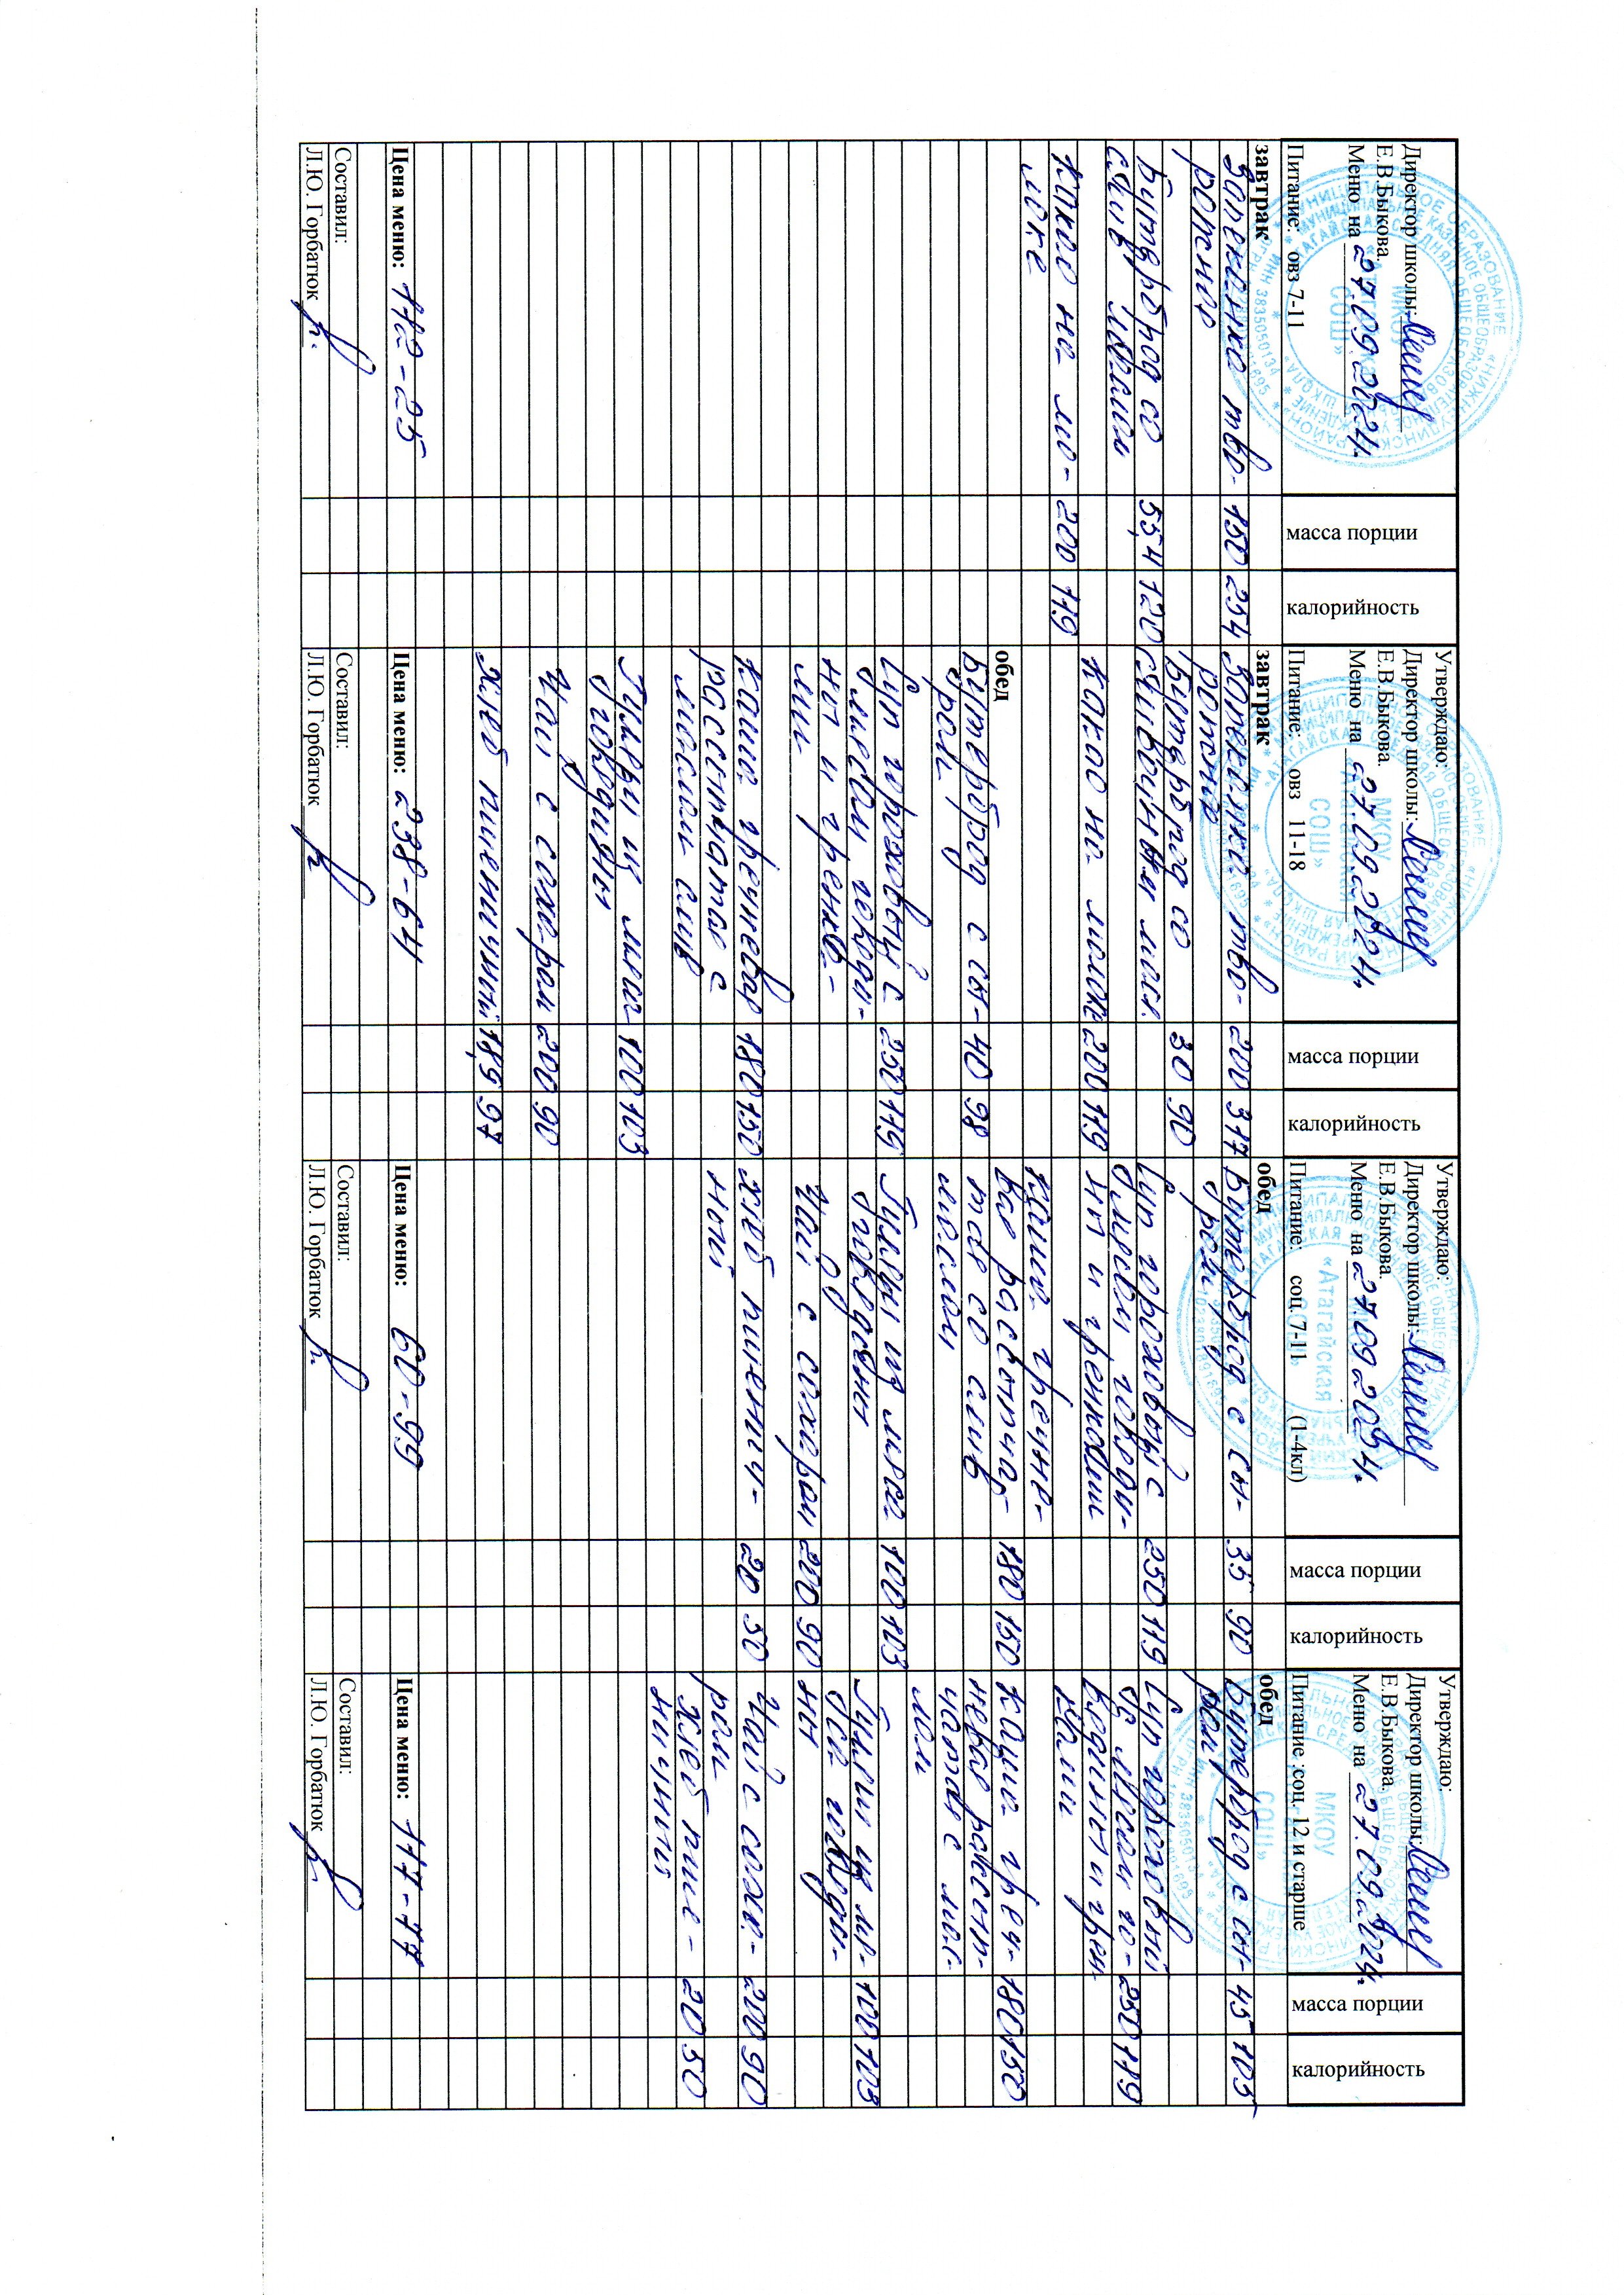 Директор школы:
Е.В.Быкова.
Меню на 27.09.2024г.
Питание: овз 7-11
масса порции
калорийность
завтрак
Запеканка тво- 150 254
рожная
Бутерброд со 55,4 120
слив маслом
Какао на мо- 200 119
локе
Цена меню: 112-25
Составил:
Л.Ю. Горбатюк
Утверждаю:
Директор школы:
Е.В.Быкова.
Меню на 27.09.2024г.
Питание: овз 11-18
масса порции
калорийность
завтрак
Запеканка тво- 200 317
рожная
Бутерброд со 30 90
сливочным масл.
Какао на молоке 200 119
обед
Бутерброд с сы- 40 98
ром
Суп гороховый с 250 119
мясом говяди-
ны и гренка-
ми
Каша гречневая 180 150
рассыпчатая с
маслом слив
Гуляш из мяса 100 103
говядины
Чай с сахаром 200 90
Хлеб пшеничный 1,89 97
Цена меню: 238-64
Составил:
Л.Ю. Горбатюк
Утверждаю:
Директор школы:
Е.В.Быкова.
Меню на 27.09.2024г.
Питание: соц. 7-11 (1-4кл)
масса порции
калорийность
обед
Бутерброд с сы- 35 90
ром
Суп гороховый с 250 119
мясом говяди-
ны и гренками
Каша гречне-
вая рассыпча- 180 150
тая со слив
маслом
Гуляш из мяса 100 103
говядины
Чай с сахаром 200 90
Хлеб пшенич- 20 50
ный
Цена меню: 60-99
Составил:
Л.Ю. Горбатюк
Утверждаю:
Директор школы:
Е.В.Быкова.
Меню на 27.09.2024г.
Питание :соц. 12 и старше
масса порции
калорийность
обед
Бутерброд с сы- 45 105
ром
Суп гороховый
с мясом го- 250 119
вядины и грен-
ками
Каша греч- 180 150
невая рассып-
чатая с мас-
лом
Гуляш из мя- 100 103
са говяди-
ны
Чай с саха- 200 90
ром
Хлеб пше- 20 50
ничный
Цена меню: 117-77
Составил:
Л.Ю. Горбатюк